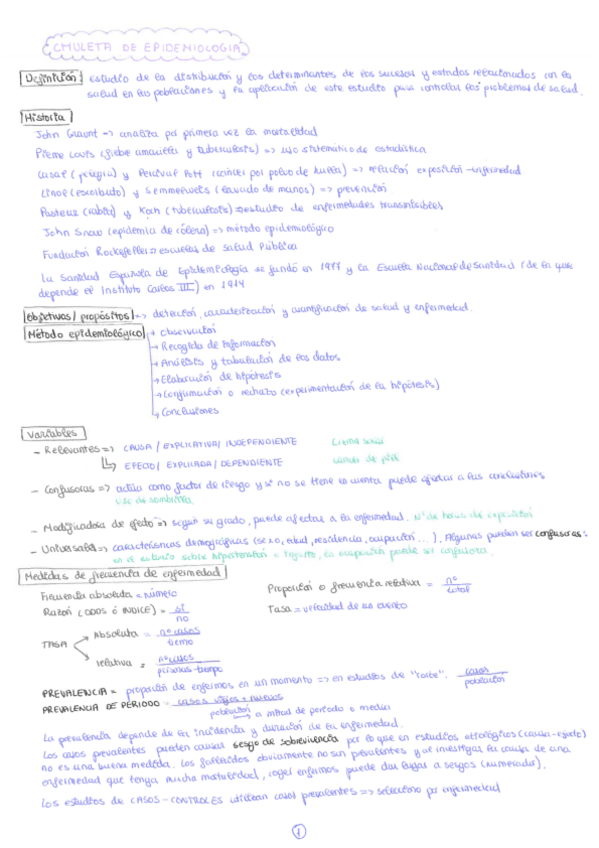 CHULETA DE EPIDEMIOLOGIA
Definición: estudio de la distribución y los determinantes de los sucesos y estados relacionados con la
salud en las poblaciones y la aplicación de este estudio para controlar los problemas de salud.
Historia
John Graunt => analiza por primera vez la mortalidad
Pierre Louis (fiebre amarilla y tuberculosis) => uso sistemático de estadística
Casal (pelagra) y Percival Pott (cáncer por polvo de hulla) => relación exposición-enfermedad
Lind (escorbuto) y Semmelweis (lavado de manos) => prevención
Pasteur (rabia) y Koch (tuberculosis) => estudio de enfermedades transmisibles
John Snow (epidemia de cólera) => método epidemiológico
Fundación Rockefeller => escuelas de Salud Pública
La Sanidad Española de Epidemiología se fundó en 1977 y la Escuela Nacional de Sanidad (de la que
depende el Instituto Carlos III) en 1924
Objetivos / propósitos => detección, caracterización y cuantificación de salud y enfermedad.
Método epidemiológico → Observación
→ Recogida de información
→ Análisis y tabulación de los datos
→ Elaboración de hipótesis
→ Confirmación o rechazo (experimentación de la hipótesis)
→ Conclusiones
Variables
- Relevantes => CAUSA / EXPLICATIVA / INDEPENDIENTE Crema solar
EFECTO / EXPLICADA / DEPENDIENTE cáncer de piel
- Confusoras => actúa como factor de riesgo y si no se tiene en cuenta puede afectar a las conclusiones
uso de sombrilla
- Modificadora de efecto => según su grado, puede afectar a la enfermedad. Nº de horas de exposición
- Universales => características demográficas (sexo, edad, residencia, ocupación ...). Algunas pueden ser confusoras:
en el estudio sobre hipertensión e , la ocupación puede ser confusora.
Medidas de frecuencia de enfermedad
Frecuencia absoluta = número Proporción o frecuencia relativa = nº / total
Razón (ODDS ó INDICE) = sí / no Tasa = velocidad de un evento
TASA Absoluta = nº casos / tiempo
relativa = nº casos / personas-tiempo
PREVALENCIA = proporción de enfermos en un momento => en estudios de "corte". casos / población
PREVALENCIA DE PERÍODO = casos viejos + nuevos / población → a mitad de periodo o media
La prevalencia depende de la incidencia y duración de la enfermedad.
Los casos prevalentes pueden causar sesgo de sobrevivencia por lo que en estudios etiológicos (causa-efecto)
no es una buena medida. Los fallecidos obviamente no son prevalentes y al investigar la causa de una
enfermedad que tenga mucha mortalidad, coger enfermos puede dar lugar a sesgos (numerador).
Los estudios de CASOS-CONTROLES utilizan casos prevalentes => selecciono por enfermedad
1